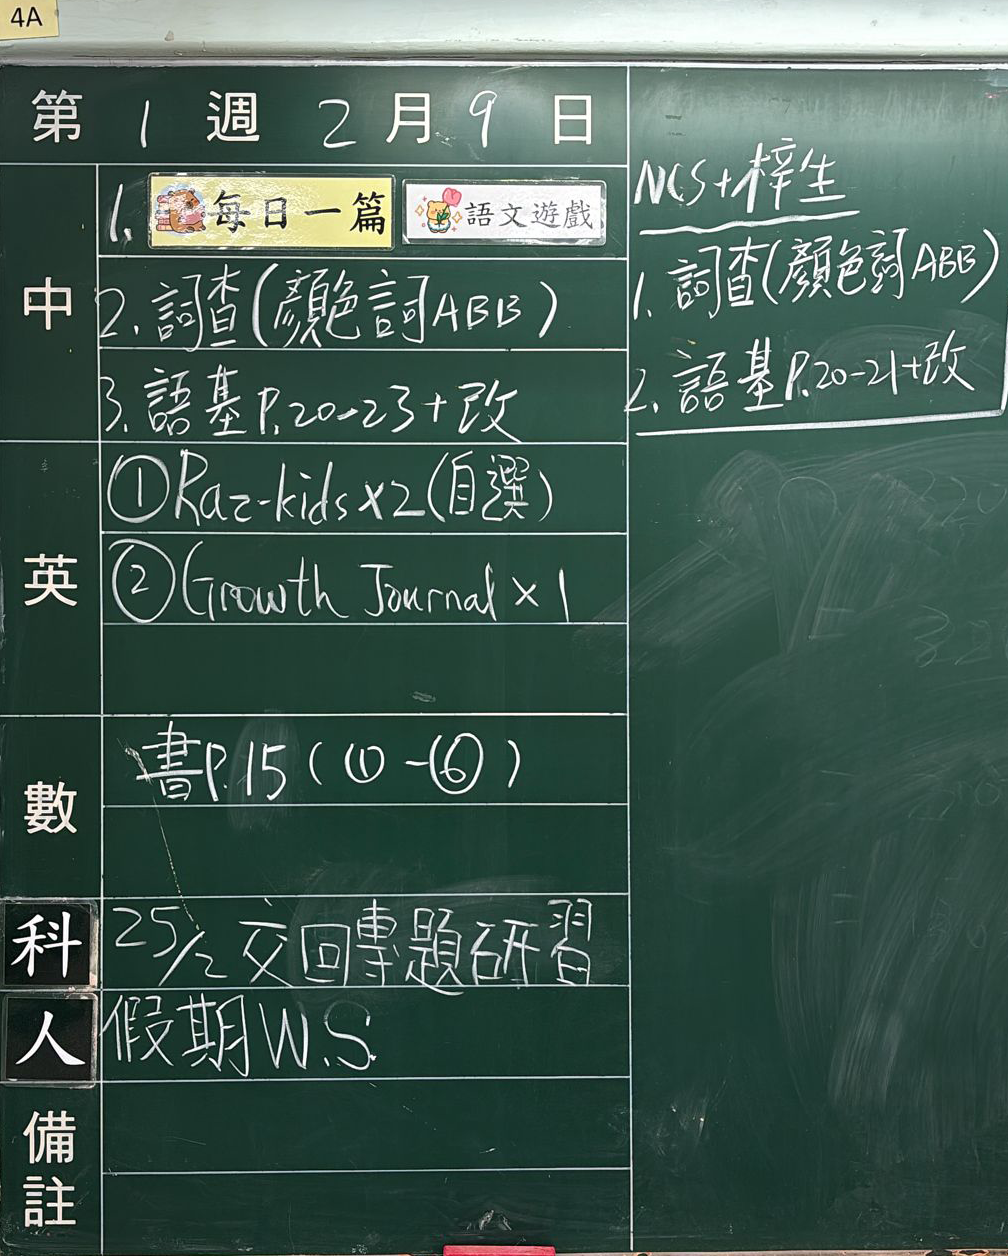 4A
第 1 週 2 月 9 日
中
1. 每日一篇 語文遊戲
2. 詞查(顏色詞ABB)
3. 語基P.20-23+改
英
①Raz-kids×2(自選)
②Growth Journal×1
數
書P.15(①-⑥)
科
25/2交回專題研習
人
假期W.S
備註
NCS+梓生
1. 詞查(顏色詞ABB)
2. 語基P.20-21+改